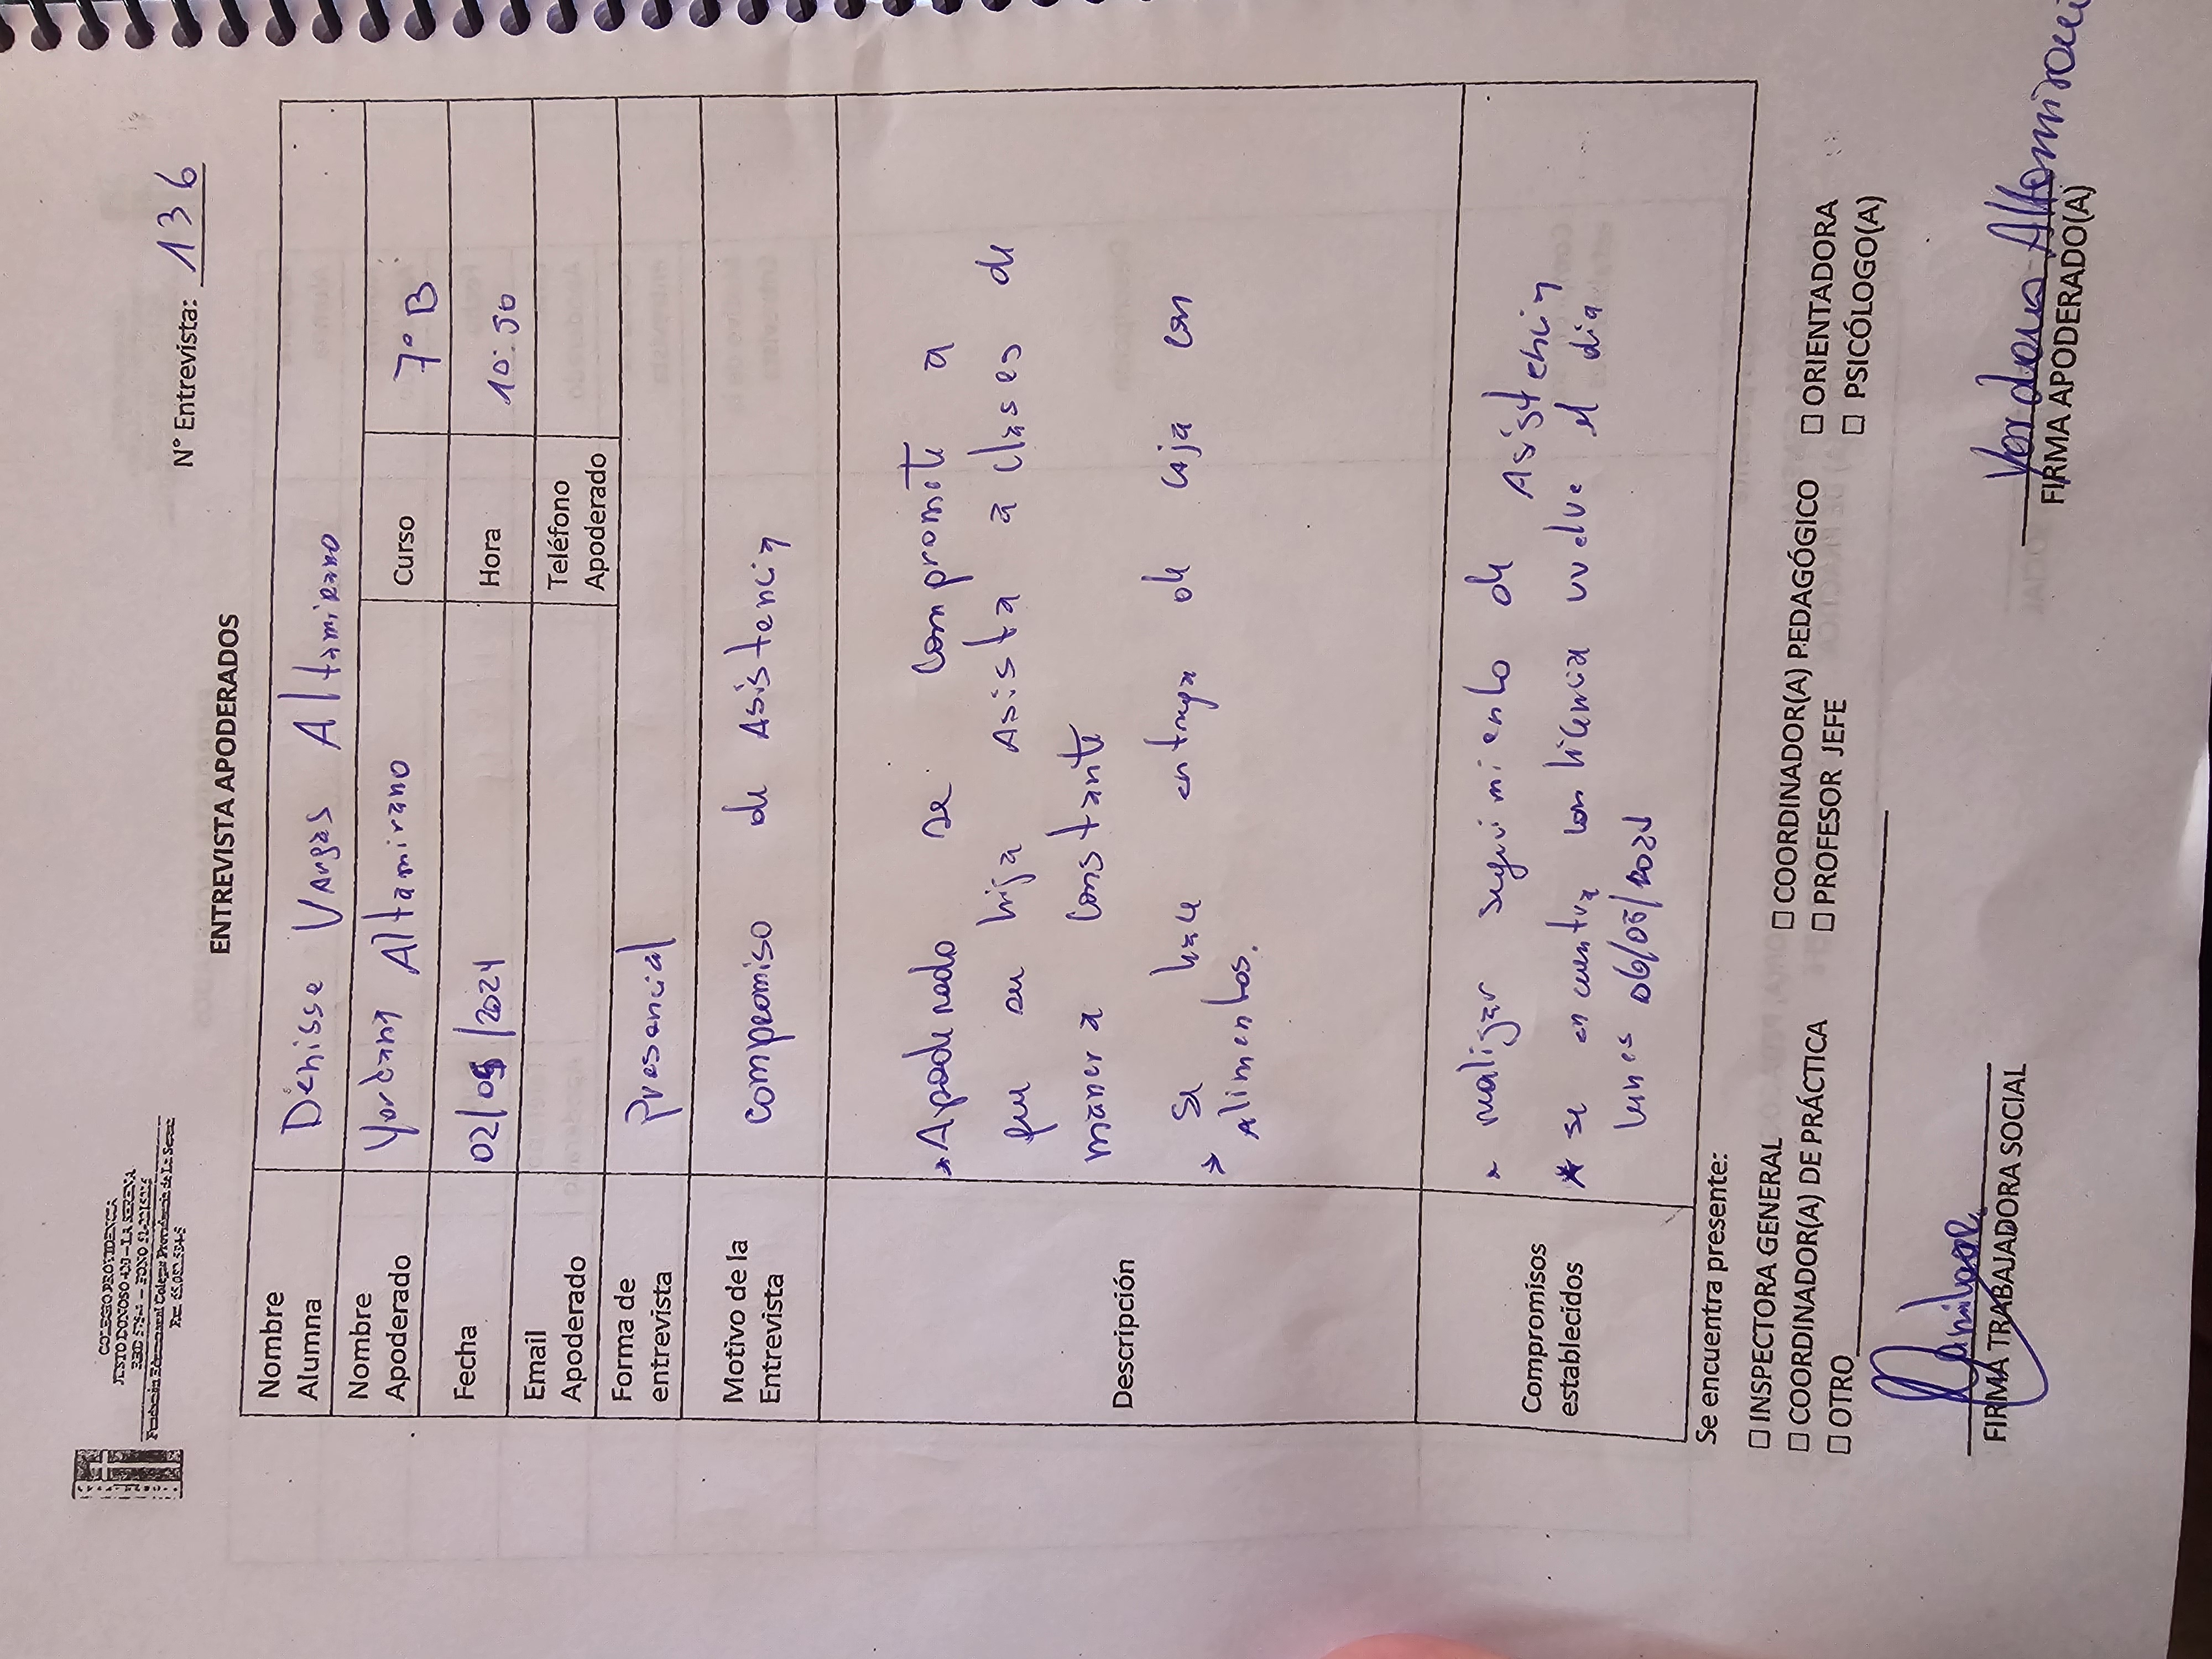 COLEGIO PROVIDENCIA
JUSTO DONOSO 420 – LA SERENA
Fundación Educacional Colegio Providencia de La Serena
N° Entrevista: 136
ENTREVISTA APODERADOS
Nombre Alumna Denisse Vargas Altamirano
Nombre Apoderado Yordana Altamirano Curso 7° B
Fecha 02/05/2024 Hora 10:50
Email Apoderado Teléfono Apoderado
Forma de entrevista Presencial
Motivo de la Entrevista Compromiso de Asistencia
Descripción
Apoderado se compromete a
que su hija Asista a clases de
manera constante
Se hace entrega de caja con
Alimentos.
Compromisos establecidos
realizar seguimiento de Asistencia
* se encuentra con licencia vuelve el día
lunes 06/05/2024
Se encuentra presente:
☐ INSPECTORA GENERAL ☐ COORDINADOR(A) PEDAGÓGICO ☐ ORIENTADORA
☐ COORDINADOR(A) DE PRÁCTICA ☐ PROFESOR JEFE ☐ PSICÓLOGO(A)
☐ OTRO
Yordana Altamirano
FIRMA TRABAJADORA SOCIAL FIRMA APODERADO(A)